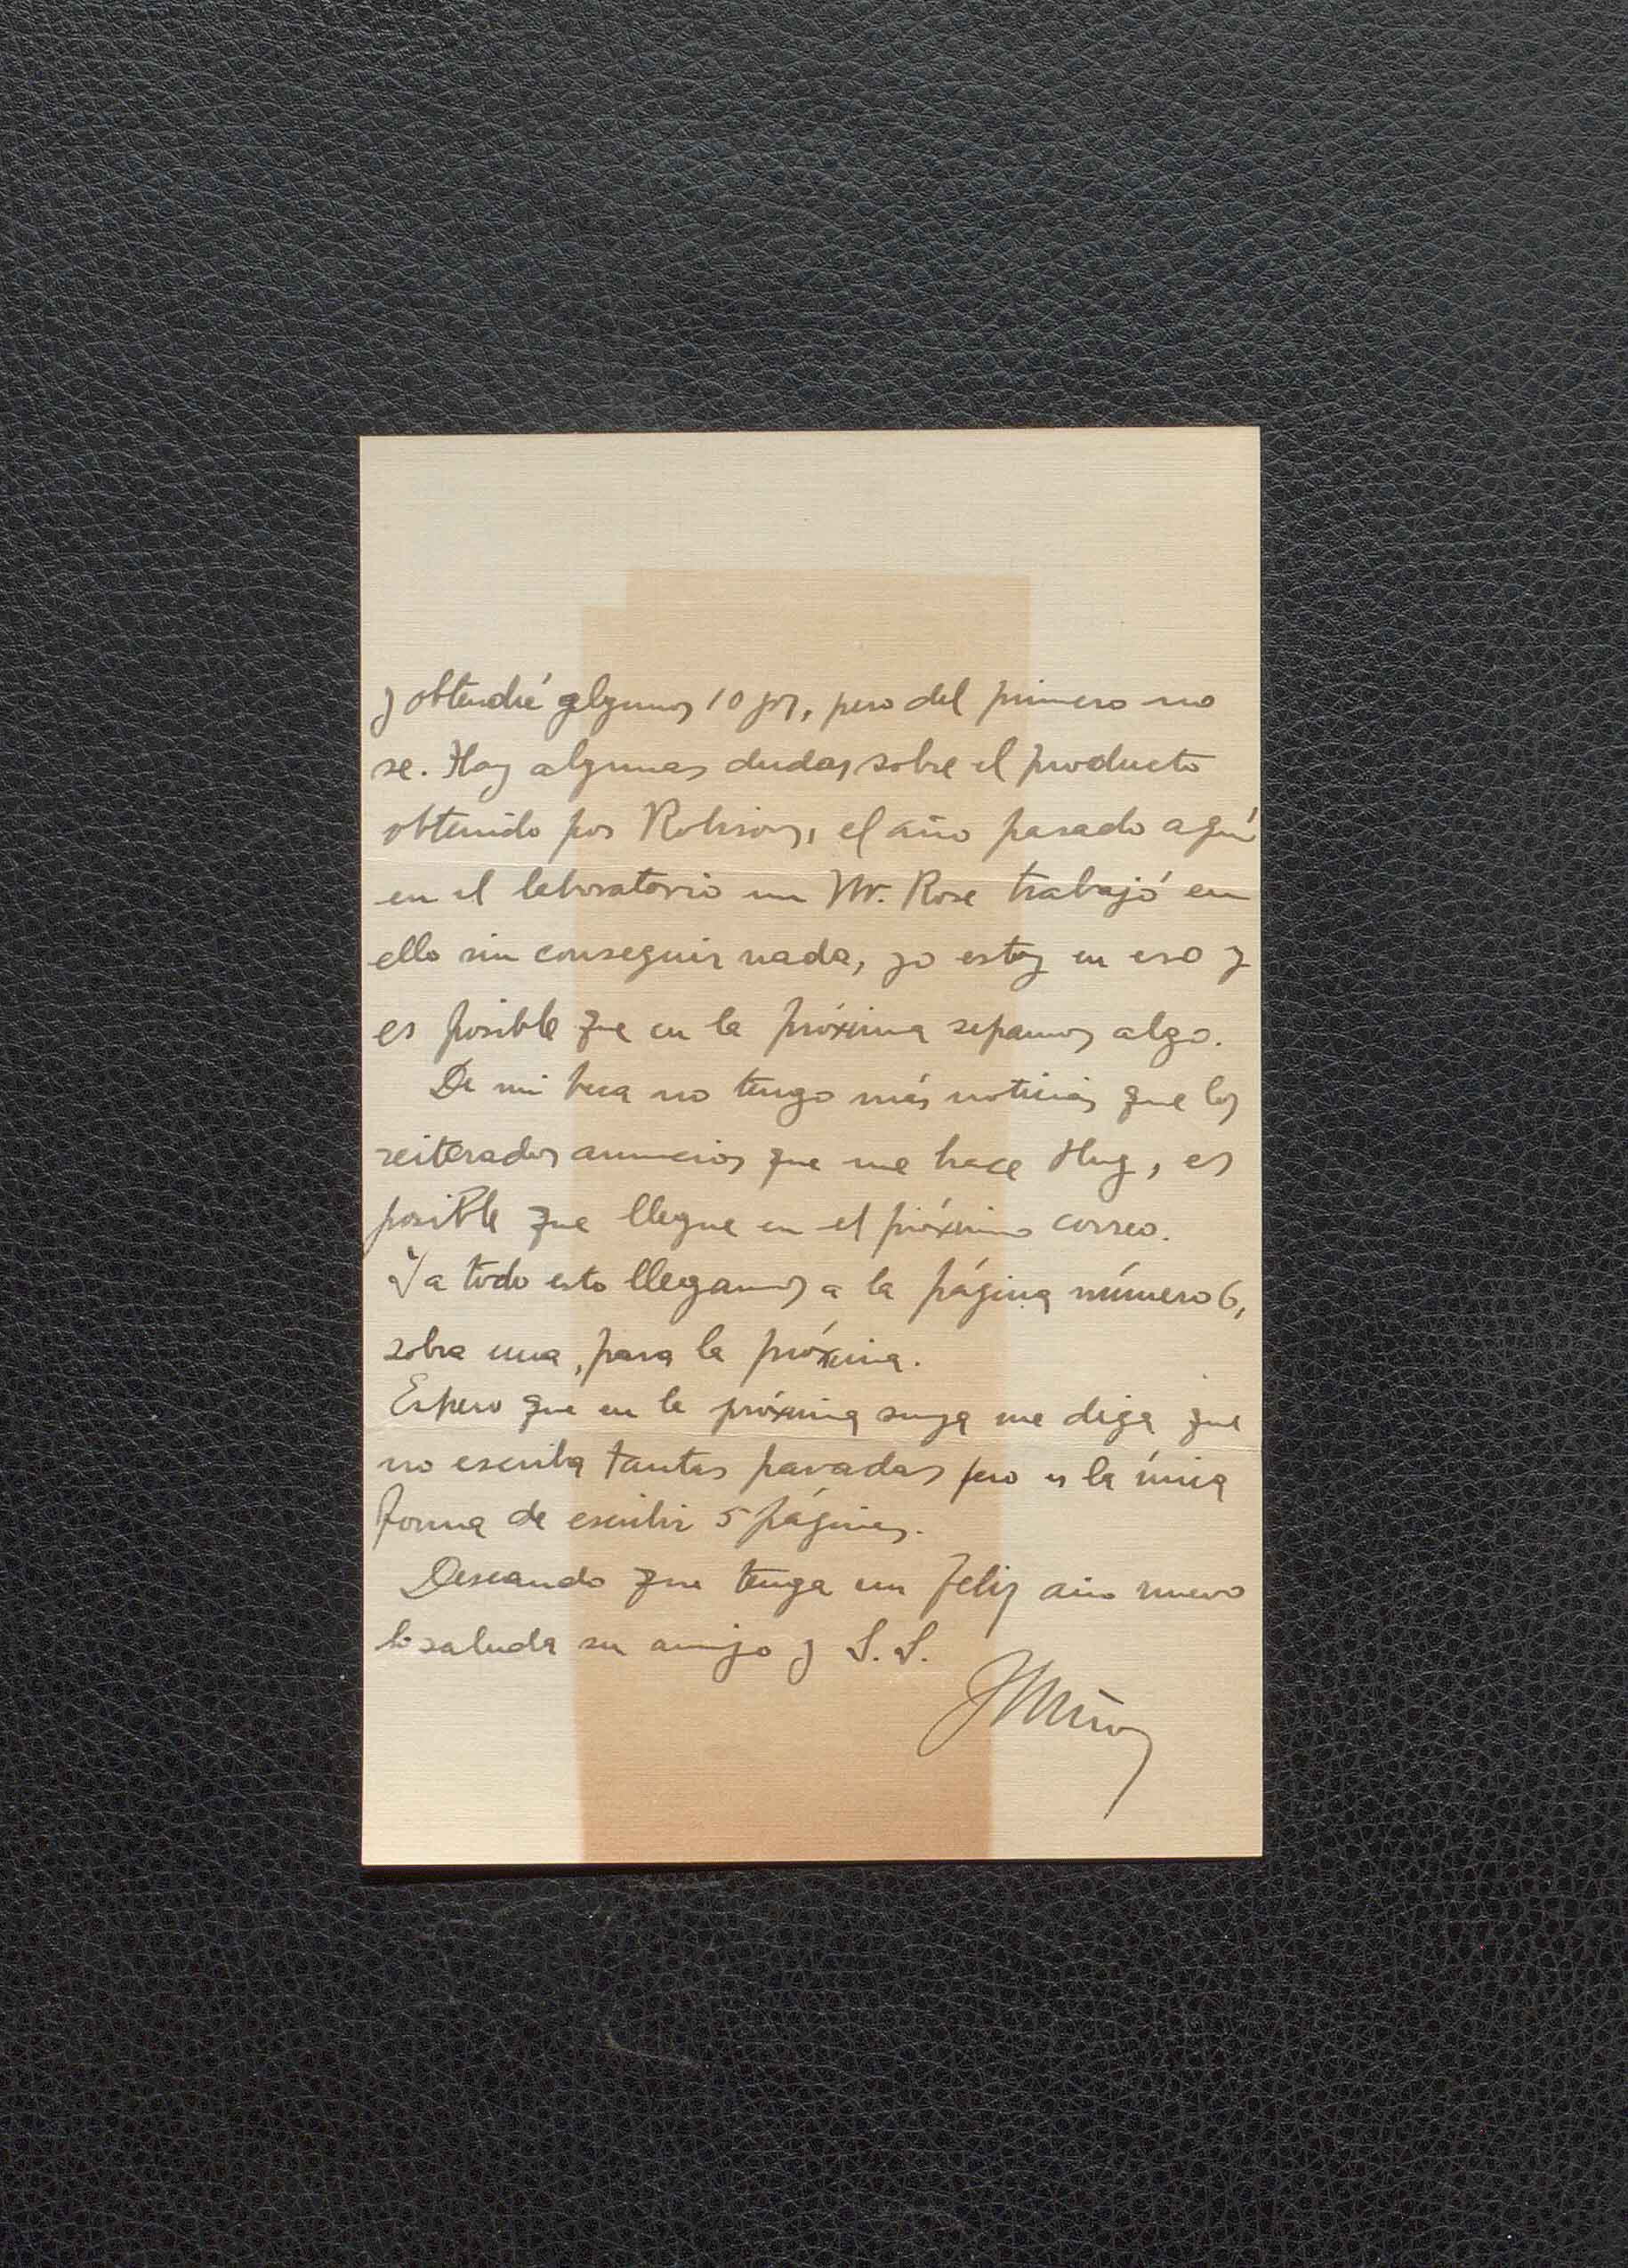 y obtendré algunos 10 gr, pero del primero no
se. Hay algunas dudas sobre el producto
obtenido por Robison, el año pasado aquí
en el laboratorio un Mr. Rose trabajó en
ello sin conseguir nada, yo estoy en eso y
es posible que en la próxima sepamos algo.
De mi beca no tengo más noticias que los
reiterados anuncios que me hace Hug, es
posible que llegue en el próximo correo.
Y a todo esto llegamos a la página número 6,
sobra una, para la próxima.
Espero que en la próxima suya me diga que
no escriba tantas pavadas pero es la única
forma de escribir 5 páginas.
Deseando que tenga un feliz año nuevo
lo saluda su amigo y S. S.
JMuñoz